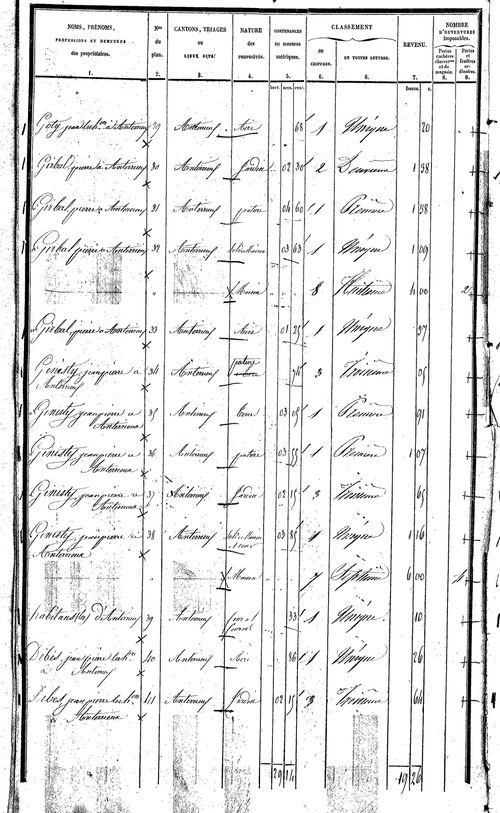 NOMS, PRÉNOMS,
PROFESSIONS ET DEMEURES
des propriétaires.
1.
Nos
du
plan.
2.
CANTONS, TRIAGES
ou
LIEUX DITS.
3.
NATURE
des
propriétés.
4.
CONTENANCES
en mesures
métriques.
5.
hect. ares. cent.
CLASSEMENT
en
CHIFFRES.
6.
EN TOUTES LETTRES.
6.
REVENU.
7.
francs. c.
NOMBRE
D'OUVERTURES
Imposables.
Portes
cochères
charret.res
et de
magasin.
8.
Portes
et
fenêtres
or-
dinaires.
8.
29 Anterrieux Aire 68 1 Unique 20
Girbal pierre à Anterrieux 30 Anterrieux Jardin 02 30 2 Deuxième 1 38
Girbal pierre à Anterrieux 31 Anterrieux pature 04 60 1 Première 1 38
Girbal pierre à Anterrieux 32 Anterrieux Sol de Maison 03 63 1 Unique 1 09
Maison 8 Huitième 4 00 2
Girbal pierre à Anterrieux 33 Anterrieux Aire 01 25 1 Unique 37
Ginesty jean pierre à
Anterrieux
34 Anterrieux pature 3 Troisième 05
Ginesty jean pierre à
Anterrieux
35 Anterrieux 03 05 1 Première 91
Ginesty jean pierre à
Anterrieux
36 Anterrieux pature 03 55 1 Première 1 07
Ginesty jean pierre à
Anterrieux
37 Anterrieux Jardin 02 15 3 Troisième 65
Ginesty jean pierre à
Anterrieux
38 Anterrieux Sol de Maison
et cour
03 85 1 Unique 1 16
Maison 7 Septième 6 00
habitans (les) d'Anterrieux 39 Anterrieux four et
33 1 Unique 10
Débès jean pierre
à Anterrieux
40 Anterrieux Aire 86 1 Unique 26
Débès jean pierre
à Anterrieux
41 Anterrieux Jardin 02 15 3 Troisième 64
29 14 19 26